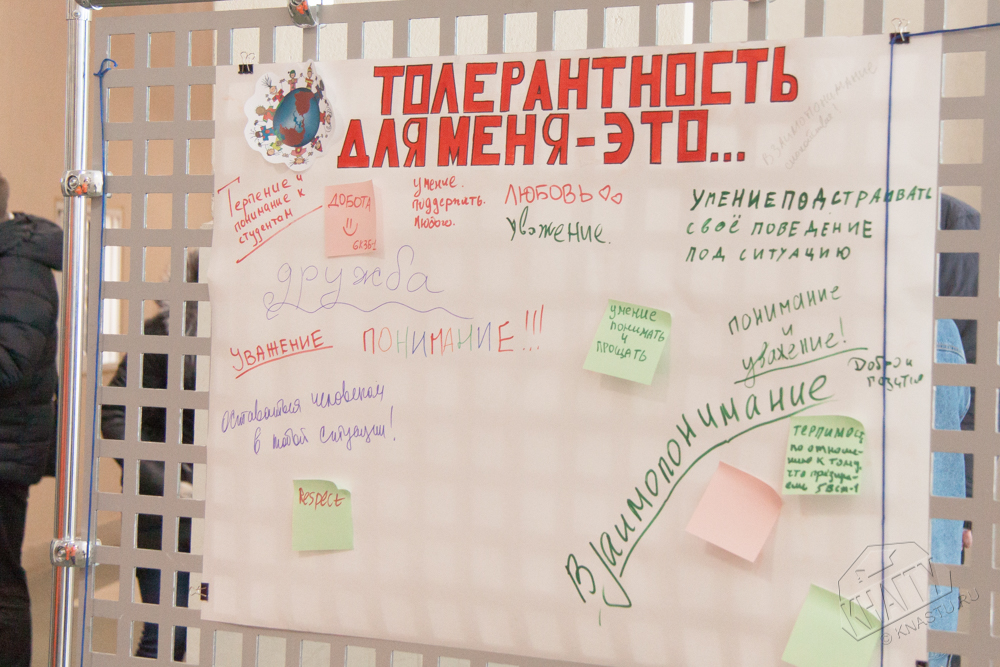 ТОЛЕРАНТНОСТЬ
ДЛЯ МЕНЯ - ЭТО...
Взаимопонимание
Терпение и
понимание к
студентам
ДОБОТА
6КЗБ1
умение
поддержить
любого.
ЛЮБОВЬ
уважение.
УМЕНИЕ ПОДСТРАИВАТЬ
СВОЁ ПОВЕДЕНИЕ
ПОД СИТУАЦИЮ
дружба
УВАЖЕНИЕ
ПОНИМАНИЕ!!!
УМЕНИЕ
ПОНИМАТЬ
И
ПРОЩАТЬ
ПОНИМАНИЕ
и
уважение!
Добро и
позитив
оставаться человеком
в любой ситуации!
Взаимопонимание
терпимость
по отноше-
нию к тому,
что презира-
ешь 5ВСм-1
Respect
KHATTY
© KNASTU.RU